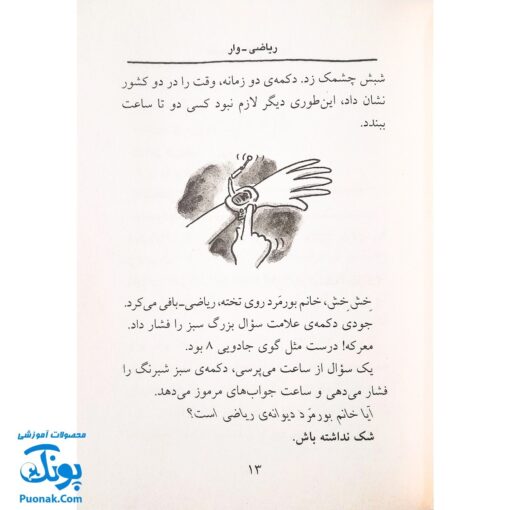 ریاضی-وار
شبش چشمک زد. دکمه‌ی دو زمانه، وقت را در دو کشور
نشان داد، این‌طوری دیگر لازم نبود کسی دو تا ساعت
ببندد.
خِش‌خِش، خانم بورمَرد روی تخته، ریاضی-بافی می‌کرد.
جودی دکمه‌ی علامت سؤال بزرگ سبز را فشار داد.
معرکه! درست مثل گوی جادویی ۸ بود.
یک سؤال از ساعت می‌پرسی، دکمه‌ی سبز شبرنگ را
فشار می‌دهی و ساعت جواب‌های مرموز می‌دهد.
آیا خانم بورمَرد دیوانه‌ی ریاضی است؟
شک نداشته باش.
۱۳
محصولات آموزشی
پونک
Puonak.Com